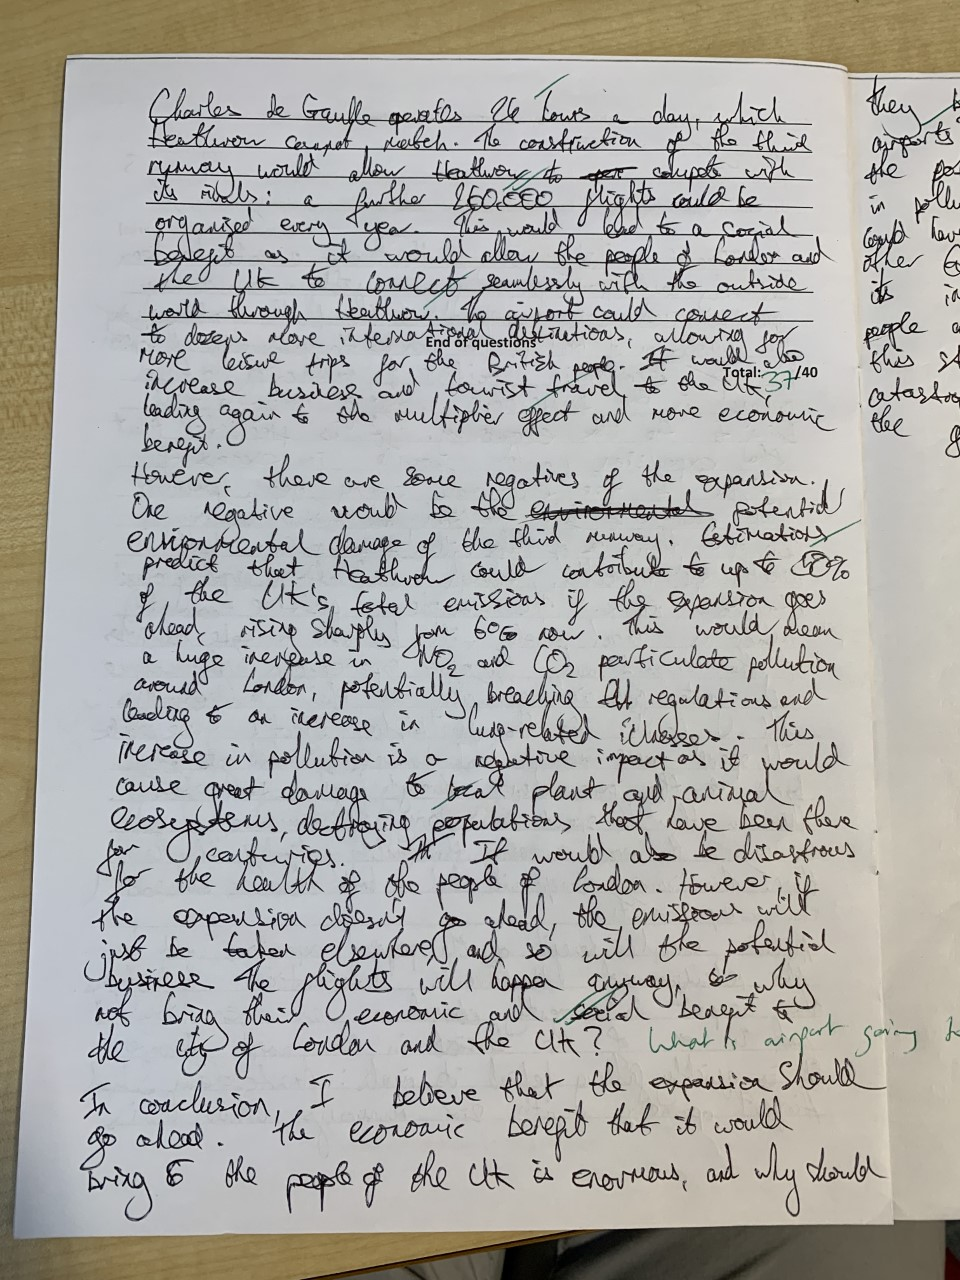 Charles de Gaulle operates 24 hours a day, which
Heathrow cannot match. The construction of the third
runway would allow Heathrow to compete with
its rivals: a further 260,000 flights could be
organised every year. This would lead to a social
benefit as it would allow the people of London and
the UK to connect seamlessly with the outside
world through Heathrow. The airport could connect
to dozens more international destinations, allowing for
End of questions
more leisure trips for the British people. It would also
Total: 37/40
increase business and tourist travel to the UK,
leading again to the multiplier effect and more economic
benefit.
However, there are some negatives of the expansion.
One negative would be the environmental potential
environmental damage of the third runway. Estimations
predict that Heathrow could contribute to up to
of the UK's total emissions if the expansion goes
ahead, rising sharply from now. This would mean
a huge increase in NO2 and CO2 particulate pollution
around London, potentially breaching regulations and
leading to an increase in lung-related illnesses. This
increase in pollution is a negative impact as it would
cause great damage to local plant and animal
ecosystems, destroying populations that have been there
for centuries. It would also be disastrous
for the health of the people of London. However, if
the expansion doesn't go ahead, the emissions will
just be taken elsewhere, and so will the potential
business. The flights will happen anyway, so why
not bring their economic and social benefit to
the city of London and the UK? What is airport going to
In conclusion, I believe that the expansion should
go ahead. The economic benefit that it would
bring to the people of the UK is enormous, and why should
they
airports
the
in
could
other
its
people
this
the